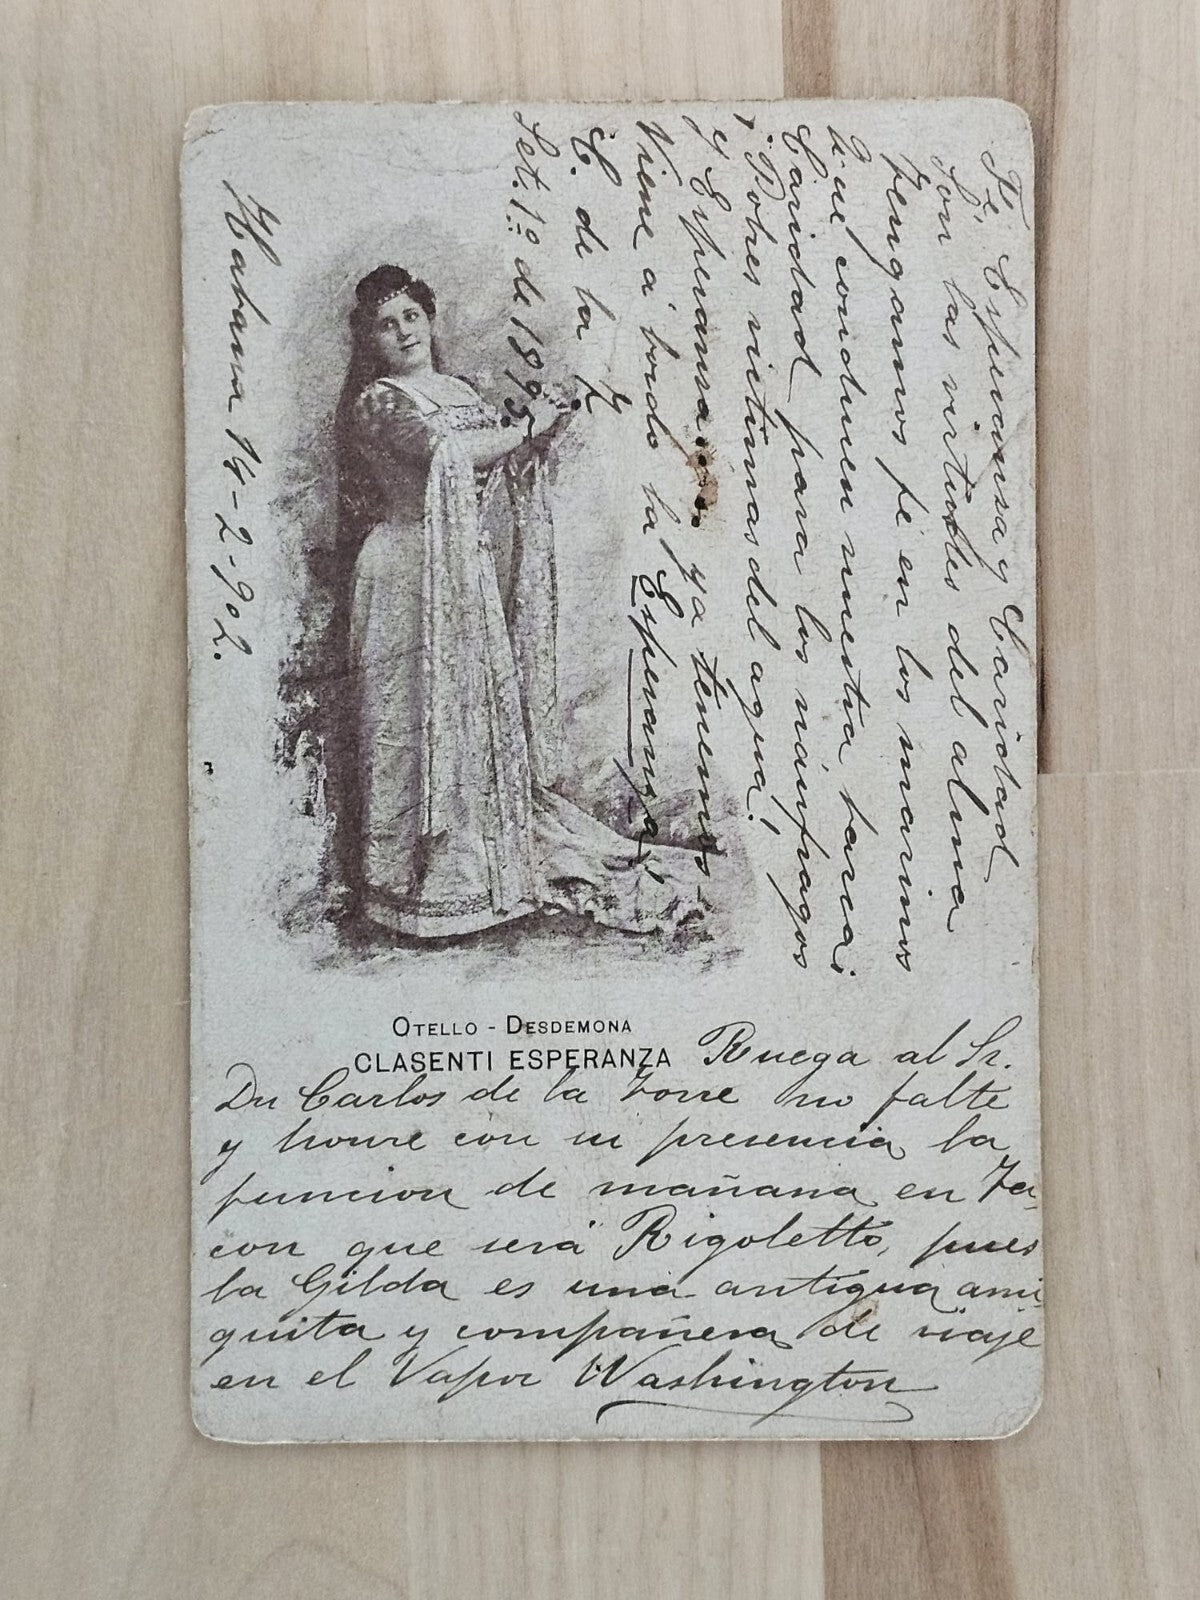 Fé Esperanza y Caridad
Son las virtudes del alma
Tengamos fé en los marinos
Que conducen nuestra barca;
Caridad para los náufragos
¡Pobres victimas del agua!
Y Esperanza.... ya tenemos
Viene á bordo la Esperanza!
C. de la T.
Set. 1º de 1895
Habana 14-2-902.
OTELLO - DESDEMONA
CLASENTI ESPERANZA
Ruega al Sr.
Dn Carlos de la Torre no falte
y honre con su presencia la
funcion de mañana en Ta-
con que será Rigoletto, pues
la Gilda es una antigua ami-
guita y compañera de viaje
en el Vapor Washington